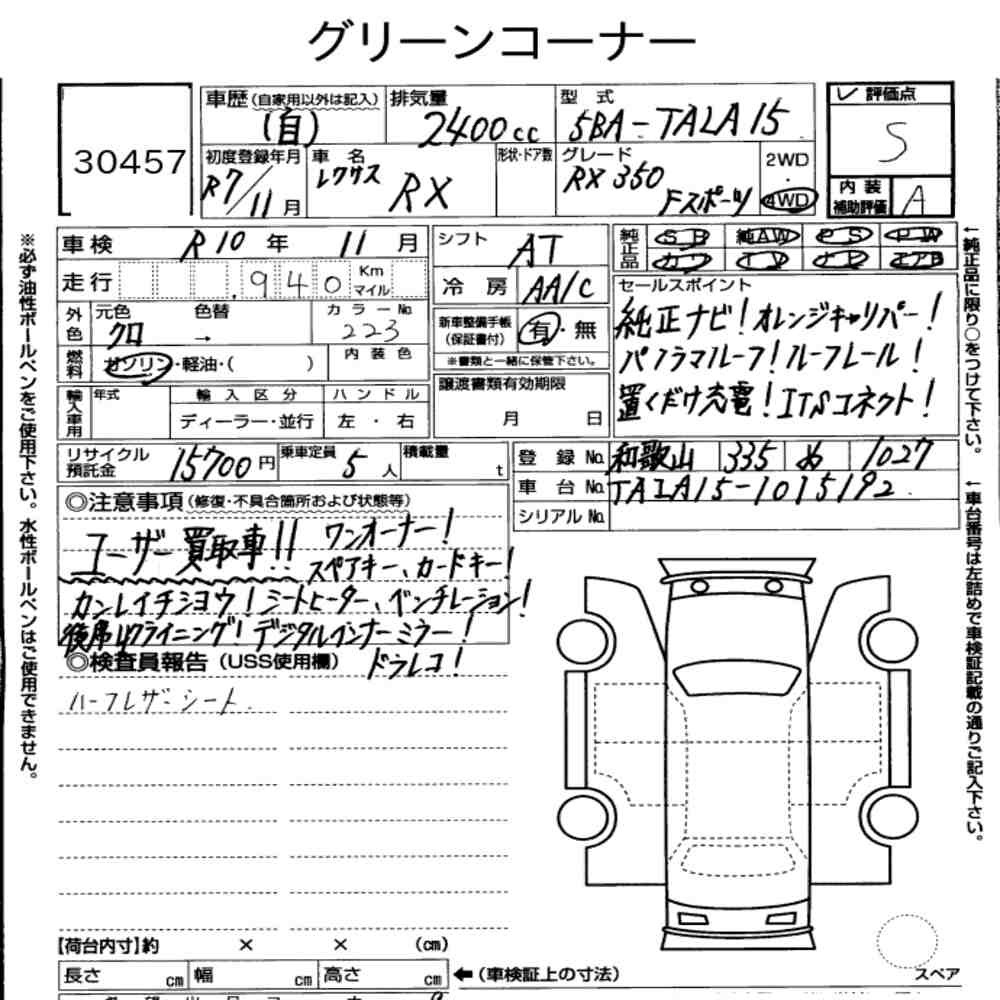 グリーンコーナー
30457
車歴 (自家用以外は記入) (自)
排気量 2400cc
型式 5BA-TALA15
✓ 評価点 S
初度登録年月 R7/11月
車名 レクサス RX
形状・ドア数
グレード RX350 Fスポーツ
2WD・4WD
内装補助評価 A
車検 R10年 11月
シフト AT
純正品 SR 純AW PS PW
カワ TV ナビ エアB
走行 940 Km マイル
冷房 AA/C
セールスポイント
純正ナビ!オレンジキャリパー!
パノラマルーフ!ルーフレール!
置くだけ充電!ITSコネクト!
外色 元色 クロ 色替 →
カラーNo 223
新車整備手帳(保証書付) 有・無
※書類と一緒に保管下さい。
燃料 ガソリン・軽油・( )
内装色
譲渡書類有効期限 月 日
輸入車用 年式
輸入区分 ディーラー・並行
ハンドル 左・右
リサイクル預託金 15700円
乗車定員 5人
積載量 t
登録No. 和歌山 335 め 1027
車台No. TALA15-1015192
シリアルNo.
◎注意事項(修復・不具合箇所および状態等)
ユーザー買取車!! ワンオーナー!
スペアキー、カードキー!
カンレイチシヨウ!シートヒーター、ベンチレーション!
後席リクライニング!デジタルインナーミラー!
◎検査員報告(USS使用欄) ドラレコ!
ハーフレザーシート
【荷台内寸】約 × × (cm)
長さ cm 幅 cm 高さ cm ←(車検証上の寸法)
スペア
※必ず油性ボールペンをご使用下さい。水性ボールペンはご使用できません。
←純正品に限り○をつけて下さい。
←車台番号は左詰めで車検証記載の通りご記入下さい。